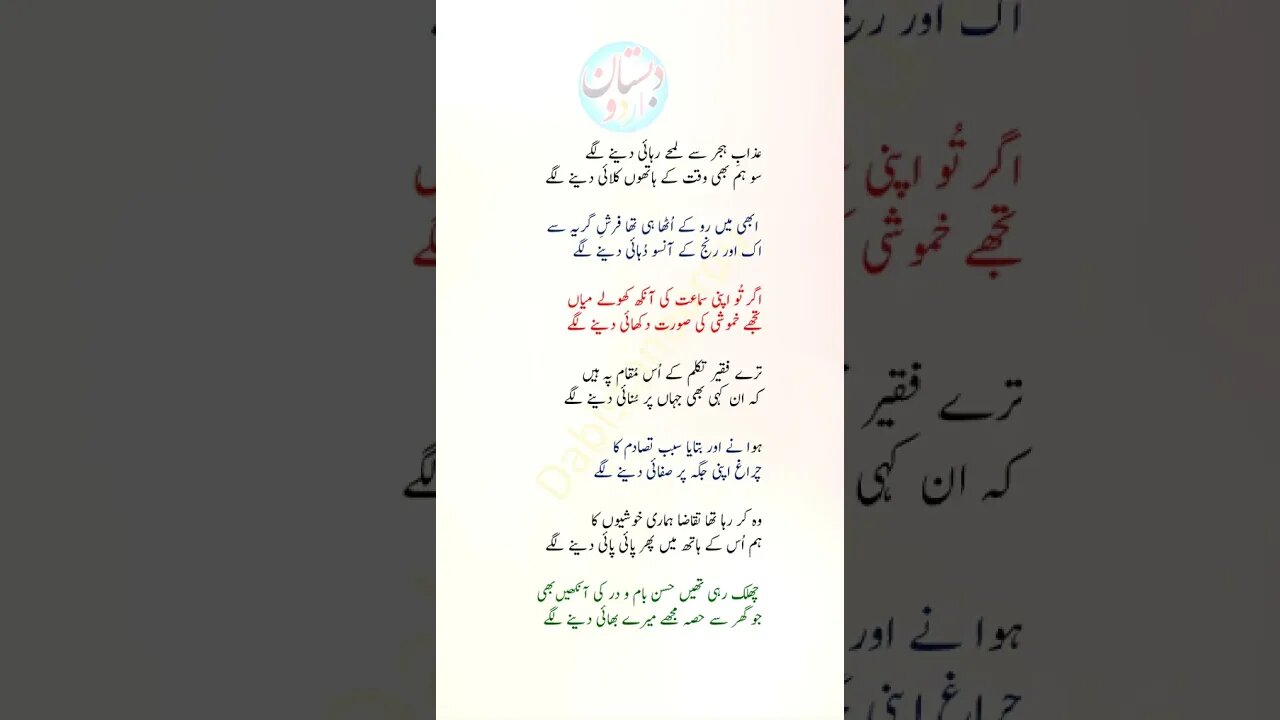 دبستان
اردو
عذابِ ہجر سے لمحے رہائی دینے لگے
سو ہم بھی وقت کے ہاتھوں کلائی دینے لگے
ابھی میں رو کے اُٹھا ہی تھا فرشِ گریہ سے
اک اور رنج کے آنسو دُہائی دینے لگے
اگر تُو اپنی سماعت کی آنکھ کھولے میاں
تجھے خموشی کی صورت دکھائی دینے لگے
ترے فقیر تکلم کے اُس مُقام پہ ہیں
کہ ان کہی بھی جہاں پر سُنائی دینے لگے
ہوا نے اور بتایا سبب تصادم کا
چراغ اپنی جگہ پر صفائی دینے لگے
وہ کر رہا تھا تقاضا ہماری خوشیوں کا
ہم اُس کے ہاتھ میں پھر پائی پائی دینے لگے
چھلک رہی تھیں حسن بام و در کی آنکھیں بھی
جو گھر سے حصہ مجھے میرے بھائی دینے لگے
اک اور رنج
اگر تُو اپنی
تجھے خموشی
ترے فقیر
کہ ان کہی
ہوا نے اور
چراغ اپنی